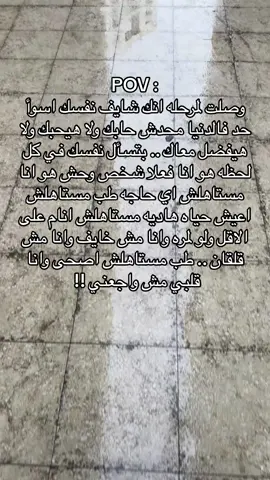 POV :
وصلت لمرحله انك شايف نفسك اسوأ
حد فالدنيا محدش حابك ولا هيحبك ولا
هيفضل معاك .. بتسأل نفسك في كل
لحظه هو انا فعلا شخص وحش هو انا
مستاهلش اي حاجه طب مستاهلش
اعيش حياه هاديه مستاهلش انام على
الاقل ولو لمره وانا مش خايف وانا مش
قلقان .. طب مستاهلش اصحى وانا
قلبي مش واجعني !!